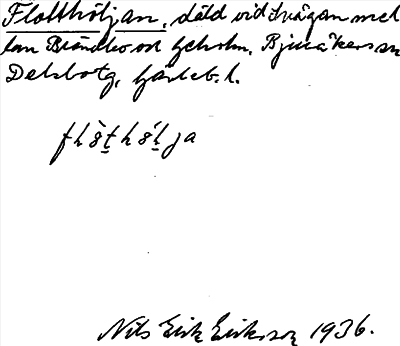 Flotthöljan, däld vid Svågan mel
lan Brändbo och Heholm, Bjuråkers sn
Delsbo tg, Gävleb. l.
flò̱tho̱lja
Nils Erik Eriksson 1936.